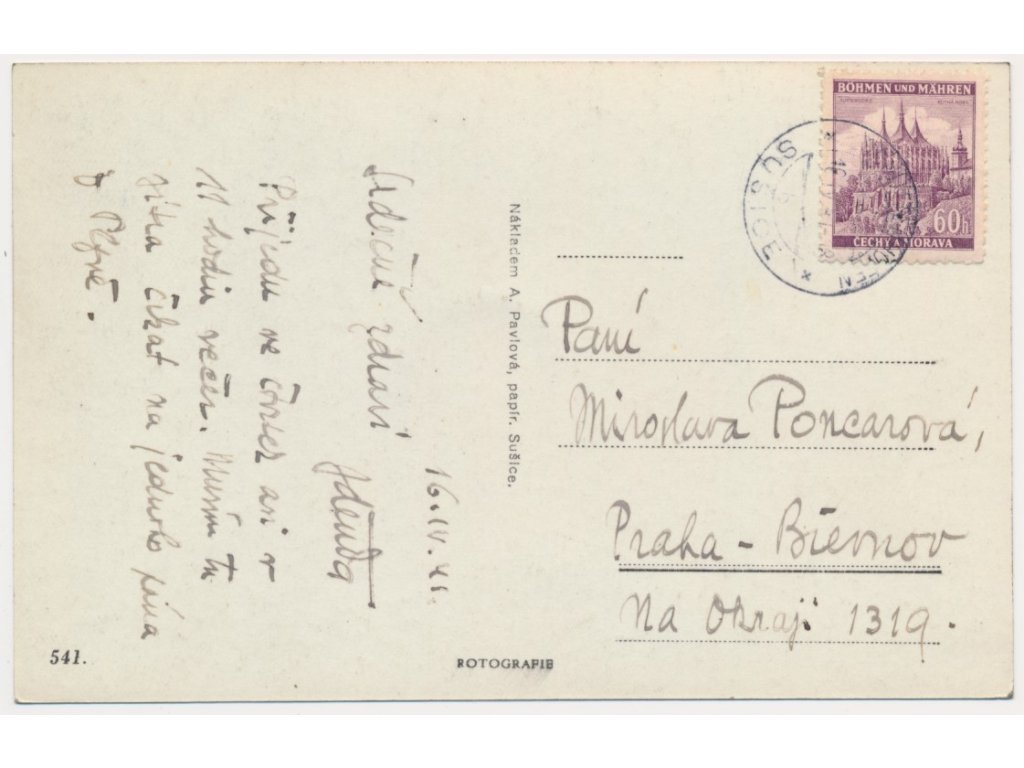 BÖHMEN UND MÄHREN
60h
ČECHY A MORAVA
SUŠICE
Srdečný zdraví
Přijedu ve čtvrtek asi v
11 hodin večer. Musím tu
zítra čekat na jednoho pána
z Plzně.
Zdenda
16.IV.41.
Nákladem A. Pavlová, papír. Sušice.
Paní
Miroslava Poncarová,
Praha - Břevnov
Na Okraji 1319.
541.
ROTOGRAFIE